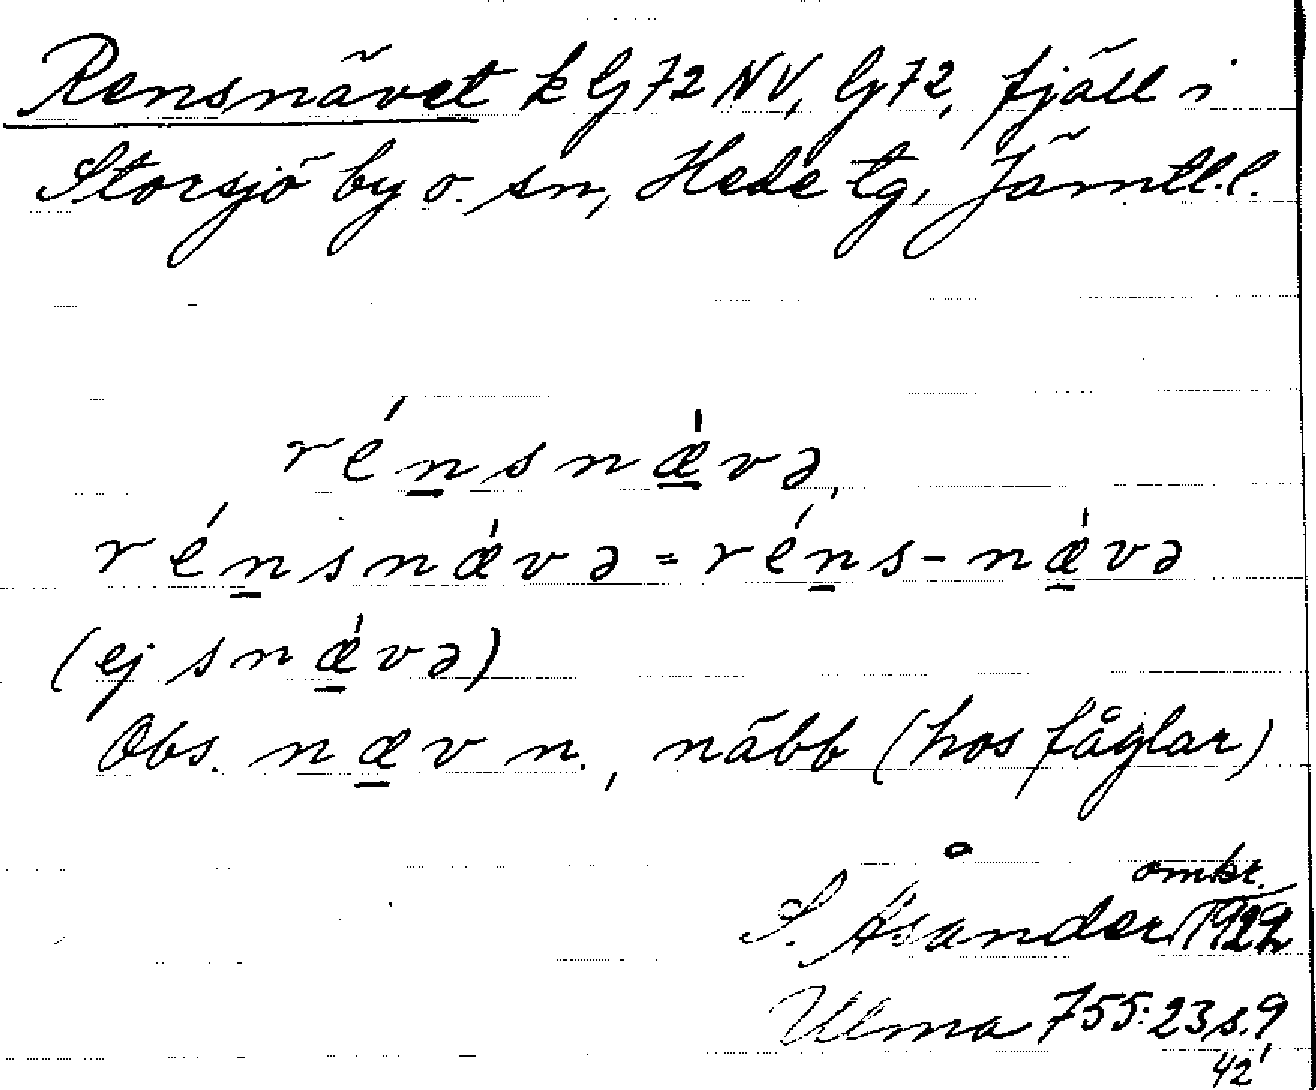 Rensnävet k lj 72 NV, lj 72, fjäll i
Storsjö by o. sn, Hede tg, Jämtl.l.
rénsnǽvə,
rénsnǽvə = réns-nǽvə
(ej snǽvə)
Obs. næv n., näbb (hos fåglar)
omkr.
S. Åsander
Ulma 755:23 s. 9
42